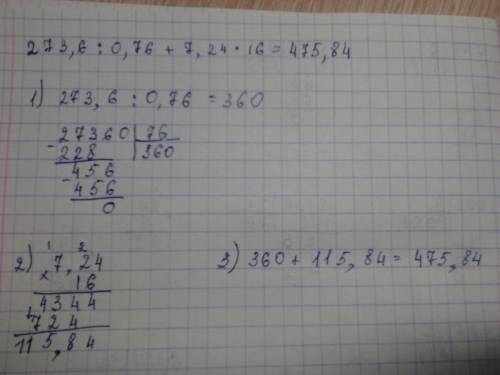 273,6 : 0,76 + 7,24 · 16 = 475,84
1) 273,6 : 0,76 = 360
27360 | 76
- 228 | 360
456
- 456
0
1 2
2) × 7,24
16
4344
+ 724
115,84
3) 360 + 115,84 = 475,84